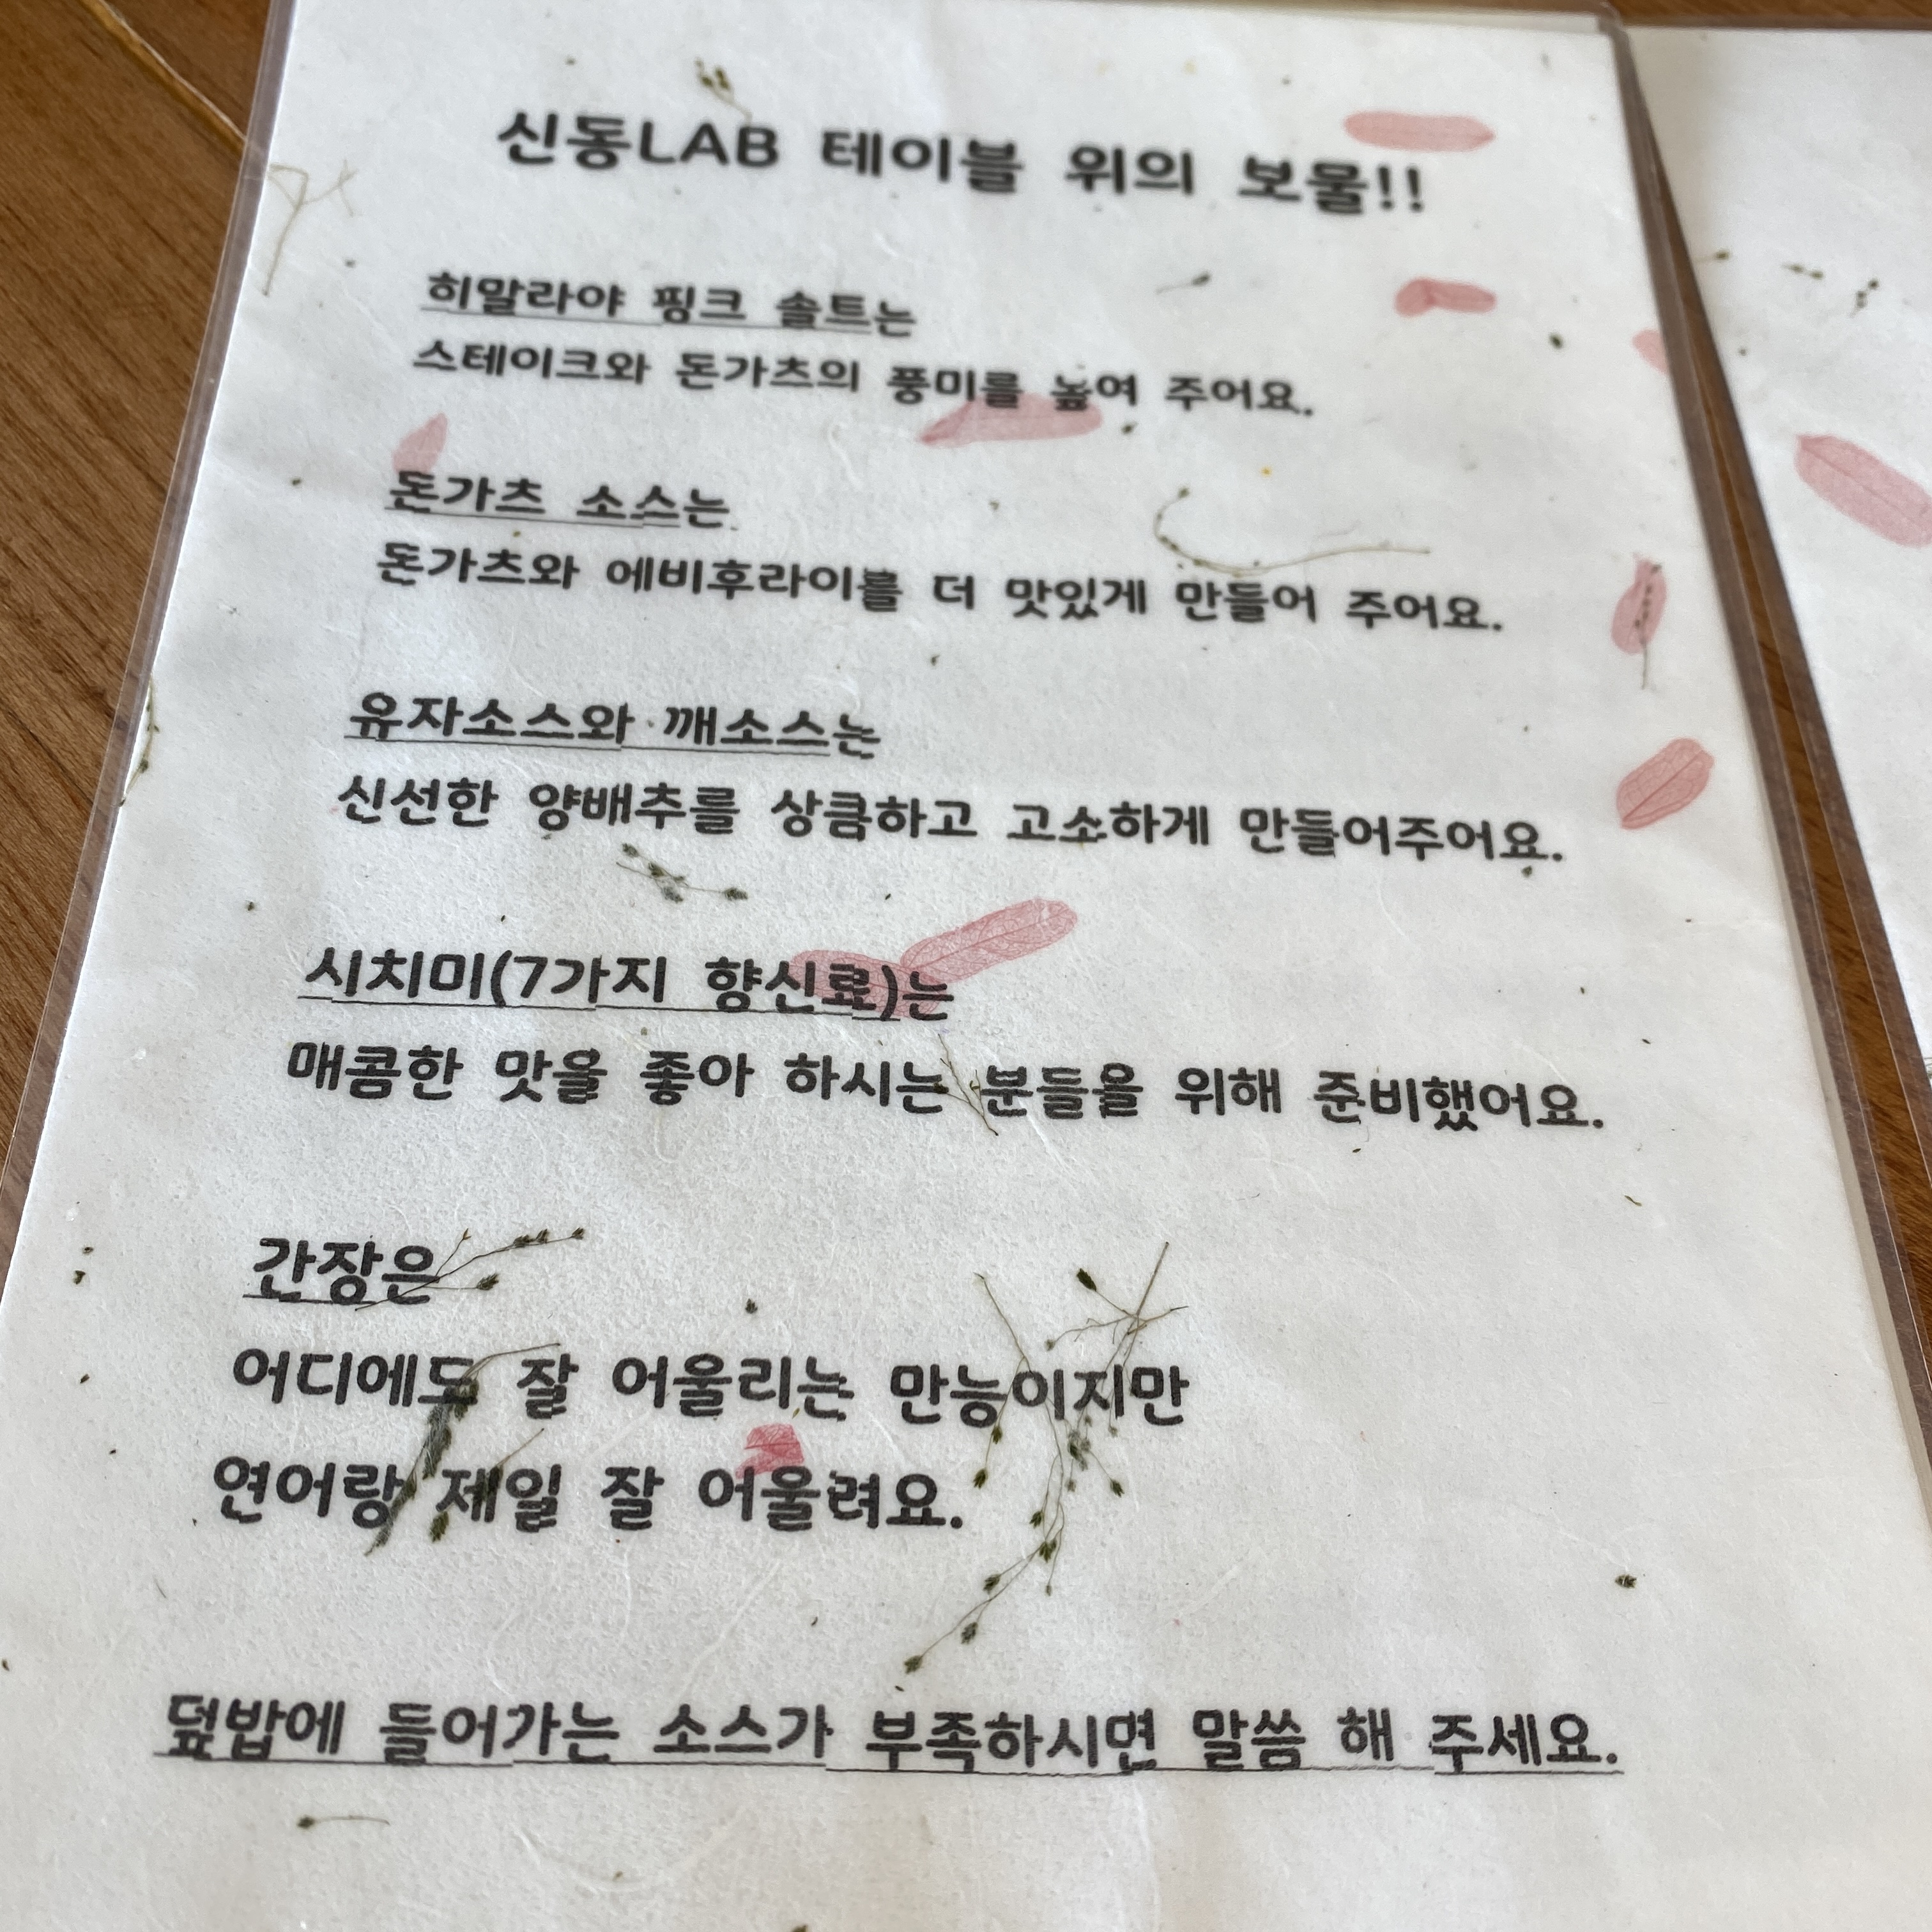 신동LAB 테이블 위의 보물!!
히말라야 핑크 솔트는
스테이크와 돈가츠의 풍미를 높여 주어요.
돈가츠 소스는
돈가츠와 에비후라이를 더 맛있게 만들어 주어요.
유자소스와 깨소스는
신선한 양배추를 상큼하고 고소하게 만들어주어요.
시치미(7가지 향신료)는
매콤한 맛을 좋아 하시는 분들을 위해 준비했어요.
간장은
어디에도 잘 어울리는 만능이지만
연어랑 제일 잘 어울려요.
덮밥에 들어가는 소스가 부족하시면 말씀 해 주세요.